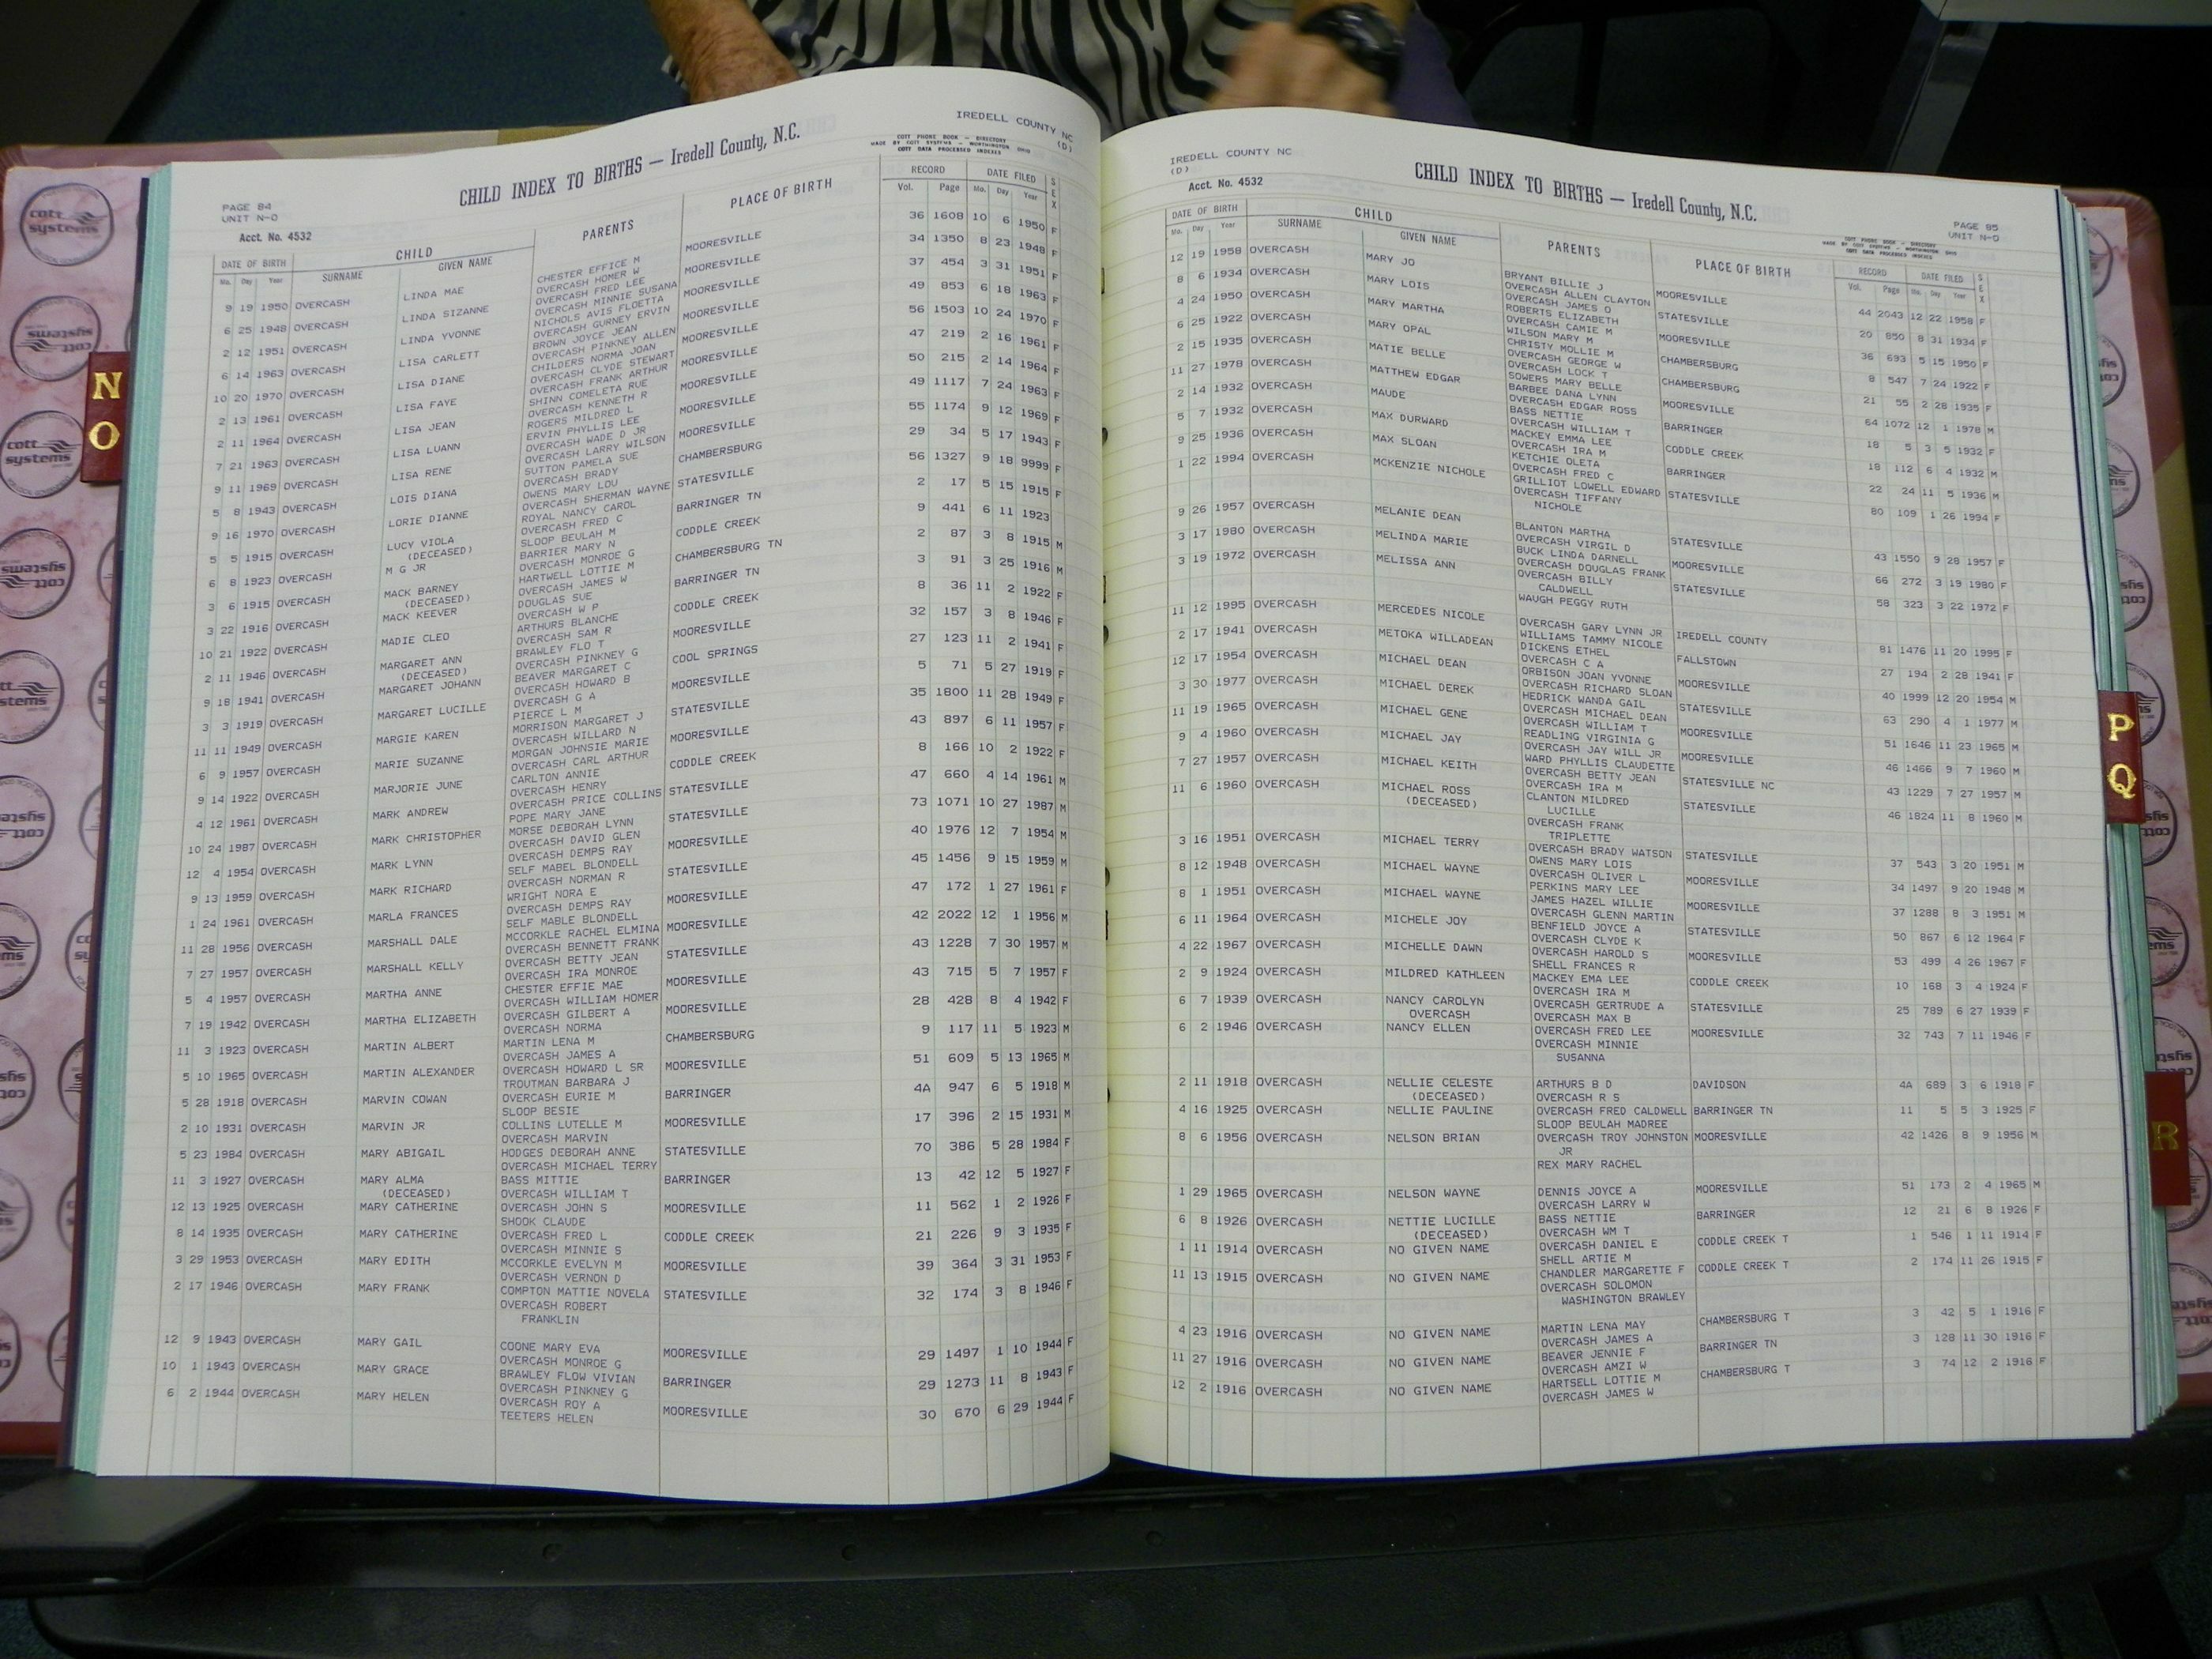 IREDELL COUNTY NC
(D)
CHILD INDEX TO BIRTHS — Iredell County, N.C.
COTT PHONE BOOK — DIRECTORY
MADE BY COTT SYSTEMS — WORTHINGTON, OHIO
COTT DATA PROCESSED INDEXES
PAGE 84
UNIT N-O
Acct. No. 4532
DATE OF BIRTH CHILD PARENTS PLACE OF BIRTH RECORD DATE FILED SEX
Mo. Day Year SURNAME GIVEN NAME Vol. Page Mo. Day Year
9 19 1950 OVERCASH LINDA MAE CHESTER EFFICE M MOORESVILLE 36 1608 10 6 1950 F
OVERCASH HOMER W
6 25 1948 OVERCASH LINDA SIZANNE OVERCASH FRED LEE MOORESVILLE 34 1350 8 23 1948 F
OVERCASH MINNIE SUSANA
2 12 1951 OVERCASH LINDA YVONNE NICHOLS AVIS FLOETTA MOORESVILLE 37 454 3 31 1951 F
OVERCASH GURNEY ERVIN
6 14 1963 OVERCASH LISA CARLETT BROWN JOYCE JEAN MOORESVILLE 49 853 6 18 1963 F
OVERCASH PINKNEY ALLEN
10 20 1970 OVERCASH LISA DIANE CHILDERS NORMA JOAN MOORESVILLE 56 1503 10 24 1970 F
OVERCASH CLYDE STEWART
2 13 1961 OVERCASH LISA FAYE OVERCASH FRANK ARTHUR MOORESVILLE 47 219 2 16 1961 F
SHINN COMELETA RUE
2 11 1964 OVERCASH LISA JEAN OVERCASH KENNETH R MOORESVILLE 50 215 2 14 1964 F
ROGERS MILDRED L
7 21 1963 OVERCASH LISA LUANN ERVIN PHYLLIS LEE MOORESVILLE 49 1117 7 24 1963 F
OVERCASH WADE D JR
9 11 1969 OVERCASH LISA RENE OVERCASH LARRY WILSON MOORESVILLE 55 1174 9 12 1969 F
SUTTON PAMELA SUE
5 8 1943 OVERCASH LOIS DIANA OVERCASH BRADY CHAMBERSBURG 29 34 5 17 1943 F
OWENS MARY LOU
9 16 1970 OVERCASH LORIE DIANNE OVERCASH SHERMAN WAYNE STATESVILLE 56 1327 9 18 9999 F
ROYAL NANCY CAROL
5 5 1915 OVERCASH LUCY VIOLA OVERCASH FRED C BARRINGER TN 2 17 5 15 1915 F
(DECEASED) SLOOP BEULAH M
6 8 1923 OVERCASH M G JR BARRIER MARY N CODDLE CREEK 9 441 6 11 1923
OVERCASH MONROE G
3 6 1915 OVERCASH MACK BARNEY HARTWELL LOTTIE M CHAMBERSBURG TN 2 87 3 8 1915 M
(DECEASED) OVERCASH JAMES W
3 22 1916 OVERCASH MACK KEEVER DOUGLAS SUE BARRINGER TN 3 91 3 25 1916 M
OVERCASH W P
10 21 1922 OVERCASH MADIE CLEO ARTHURS BLANCHE CODDLE CREEK 8 36 11 2 1922 F
OVERCASH SAM R
2 11 1946 OVERCASH MARGARET ANN BRAWLEY FLO T MOORESVILLE 32 157 3 8 1946 F
(DECEASED) OVERCASH PINKNEY G
9 18 1941 OVERCASH MARGARET JOHANN BEAVER MARGARET C COOL SPRINGS 27 123 11 2 1941 F
OVERCASH HOWARD B
3 3 1919 OVERCASH MARGARET LUCILLE OVERCASH G A MOORESVILLE 5 71 5 27 1919 F
PIERCE L M
11 11 1949 OVERCASH MARGIE KAREN MORRISON MARGARET J STATESVILLE 35 1800 11 28 1949 F
OVERCASH WILLARD N
6 9 1957 OVERCASH MARIE SUZANNE MORGAN JOHNSIE MARIE MOORESVILLE 43 897 6 11 1957 F
OVERCASH CARL ARTHUR
9 14 1922 OVERCASH MARJORIE JUNE CARLTON ANNIE CODDLE CREEK 8 166 10 2 1922 F
OVERCASH HENRY
4 12 1961 OVERCASH MARK ANDREW OVERCASH PRICE COLLINS STATESVILLE 47 660 4 14 1961 M
POPE MARY JANE
10 24 1987 OVERCASH MARK CHRISTOPHER MORSE DEBORAH LYNN STATESVILLE 73 1071 10 27 1987 M
OVERCASH DAVID GLEN
12 4 1954 OVERCASH MARK LYNN OVERCASH DEMPS RAY MOORESVILLE 40 1976 12 7 1954 M
SELF MABEL BLONDELL
9 13 1959 OVERCASH MARK RICHARD OVERCASH NORMAN R STATESVILLE 45 1456 9 15 1959 M
WRIGHT NORA E
1 24 1961 OVERCASH MARLA FRANCES OVERCASH DEMPS RAY MOORESVILLE 47 172 1 27 1961 F
SELF MABLE BLONDELL
11 28 1956 OVERCASH MARSHALL DALE MCCORKLE RACHEL ELMINA MOORESVILLE 42 2022 12 1 1956 M
OVERCASH BENNETT FRANK
7 27 1957 OVERCASH MARSHALL KELLY OVERCASH BETTY JEAN STATESVILLE 43 1228 7 30 1957 M
OVERCASH IRA MONROE
5 4 1957 OVERCASH MARTHA ANNE CHESTER EFFIE MAE MOORESVILLE 43 715 5 7 1957 F
OVERCASH WILLIAM HOMER
7 19 1942 OVERCASH MARTHA ELIZABETH OVERCASH GILBERT A MOORESVILLE 28 428 8 4 1942 F
OVERCASH NORMA
11 3 1923 OVERCASH MARTIN ALBERT MARTIN LENA M CHAMBERSBURG 9 117 11 5 1923 M
OVERCASH JAMES A
5 10 1965 OVERCASH MARTIN ALEXANDER OVERCASH HOWARD L SR MOORESVILLE 51 609 5 13 1965 M
TROUTMAN BARBARA J
5 28 1918 OVERCASH MARVIN COWAN OVERCASH EURIE M BARRINGER 4A 947 6 5 1918 M
SLOOP BESIE
2 10 1931 OVERCASH MARVIN JR COLLINS LUTELLE M MOORESVILLE 17 396 2 15 1931 M
OVERCASH MARVIN
5 23 1984 OVERCASH MARY ABIGAIL HODGES DEBORAH ANNE STATESVILLE 70 386 5 28 1984 F
OVERCASH MICHAEL TERRY
11 3 1927 OVERCASH MARY ALMA BASS MITTIE BARRINGER 13 42 12 5 1927 F
(DECEASED) OVERCASH WILLIAM T
12 13 1925 OVERCASH MARY CATHERINE OVERCASH JOHN S MOORESVILLE 11 562 1 2 1926 F
SHOOK CLAUDE
8 14 1935 OVERCASH MARY CATHERINE OVERCASH FRED L CODDLE CREEK 21 226 9 3 1935 F
OVERCASH MINNIE S
3 29 1953 OVERCASH MARY EDITH MCCORKLE EVELYN M MOORESVILLE 39 364 3 31 1953 F
OVERCASH VERNON D
2 17 1946 OVERCASH MARY FRANK COMPTON MATTIE NOVELA STATESVILLE 32 174 3 8 1946 F
OVERCASH ROBERT
FRANKLIN
12 9 1943 OVERCASH MARY GAIL COONE MARY EVA MOORESVILLE 29 1497 1 10 1944 F
OVERCASH MONROE G
10 1 1943 OVERCASH MARY GRACE BRAWLEY FLOW VIVIAN BARRINGER 29 1273 11 8 1943 F
OVERCASH PINKNEY G
6 2 1944 OVERCASH MARY HELEN OVERCASH ROY A MOORESVILLE 30 670 6 29 1944 F
TEETERS HELEN
IREDELL COUNTY NC
(D)
Acct. No. 4532
CHILD INDEX TO BIRTHS — Iredell County, N.C.
PAGE 85
UNIT N-O
COTT PHONE BOOK — DIRECTORY
MADE BY COTT SYSTEMS — WORTHINGTON, OHIO
COTT DATA PROCESSED INDEXES
DATE OF BIRTH CHILD PARENTS PLACE OF BIRTH RECORD DATE FILED SEX
Mo. Day Year SURNAME GIVEN NAME Vol. Page Mo. Day Year
12 19 1958 OVERCASH MARY JO BRYANT BILLIE J MOORESVILLE 44 2043 12 22 1958 F
OVERCASH ALLEN CLAYTON
8 6 1934 OVERCASH MARY LOIS OVERCASH JAMES O STATESVILLE 20 850 8 31 1934 F
ROBERTS ELIZABETH
4 24 1950 OVERCASH MARY MARTHA OVERCASH CAMIE M MOORESVILLE 36 693 5 15 1950 F
WILSON MARY M
6 25 1922 OVERCASH MARY OPAL CHRISTY MOLLIE M CHAMBERSBURG 8 547 7 24 1922 F
OVERCASH GEORGE W
2 15 1935 OVERCASH MATIE BELLE OVERCASH LOCK T CHAMBERSBURG 21 55 2 28 1935 F
SOWERS MARY BELLE
11 27 1978 OVERCASH MATTHEW EDGAR BARBEE DANA LYNN MOORESVILLE 64 1072 12 1 1978 M
OVERCASH EDGAR ROSS
2 14 1932 OVERCASH MAUDE BASS NETTIE BARRINGER 18 5 3 5 1932 F
OVERCASH WILLIAM T
5 7 1932 OVERCASH MAX DURWARD MACKEY EMMA LEE CODDLE CREEK 18 112 6 4 1932 M
OVERCASH IRA M
9 25 1936 OVERCASH MAX SLOAN KETCHIE OLETA BARRINGER 22 24 11 5 1936 M
OVERCASH FRED C
1 22 1994 OVERCASH MCKENZIE NICHOLE GRILLIOT LOWELL EDWARD STATESVILLE 80 109 1 26 1994 F
OVERCASH TIFFANY
NICHOLE
9 26 1957 OVERCASH MELANIE DEAN BLANTON MARTHA STATESVILLE 43 1550 9 28 1957 F
OVERCASH VIRGIL D
3 17 1980 OVERCASH MELINDA MARIE BUCK LINDA DARNELL MOORESVILLE 66 272 3 19 1980 F
OVERCASH DOUGLAS FRANK
3 19 1972 OVERCASH MELISSA ANN OVERCASH BILLY STATESVILLE 58 323 3 22 1972 F
CALDWELL
WAUGH PEGGY RUTH
11 12 1995 OVERCASH MERCEDES NICOLE OVERCASH GARY LYNN JR IREDELL COUNTY 81 1476 11 20 1995 F
WILLIAMS TAMMY NICOLE
2 17 1941 OVERCASH METOKA WILLADEAN DICKENS ETHEL FALLSTOWN 27 194 2 28 1941 F
OVERCASH C A
12 17 1954 OVERCASH MICHAEL DEAN ORBISON JOAN YVONNE MOORESVILLE 40 1999 12 20 1954 M
OVERCASH RICHARD SLOAN
3 30 1977 OVERCASH MICHAEL DEREK HEDRICK WANDA GAIL STATESVILLE 63 290 4 1 1977 M
OVERCASH MICHAEL DEAN
11 19 1965 OVERCASH MICHAEL GENE OVERCASH WILLIAM T MOORESVILLE 51 1646 11 23 1965 M
READLING VIRGINIA G
9 4 1960 OVERCASH MICHAEL JAY OVERCASH JAY WILL JR MOORESVILLE 46 1466 9 7 1960 M
WARD PHYLLIS CLAUDETTE
7 27 1957 OVERCASH MICHAEL KEITH OVERCASH BETTY JEAN STATESVILLE NC 43 1229 7 27 1957 M
OVERCASH IRA M
11 6 1960 OVERCASH MICHAEL ROSS CLANTON MILDRED STATESVILLE 46 1824 11 8 1960 M
(DECEASED) LUCILLE
OVERCASH FRANK
TRIPLETTE
3 16 1951 OVERCASH MICHAEL TERRY OVERCASH BRADY WATSON STATESVILLE 37 543 3 20 1951 M
OWENS MARY LOIS
8 12 1948 OVERCASH MICHAEL WAYNE OVERCASH OLIVER L MOORESVILLE 34 1497 9 20 1948 M
PERKINS MARY LEE
8 1 1951 OVERCASH MICHAEL WAYNE JAMES HAZEL WILLIE MOORESVILLE 37 1288 8 3 1951 M
OVERCASH GLENN MARTIN
6 11 1964 OVERCASH MICHELE JOY BENFIELD JOYCE A STATESVILLE 50 867 6 12 1964 F
OVERCASH CLYDE K
4 22 1967 OVERCASH MICHELLE DAWN OVERCASH HAROLD S MOORESVILLE 53 499 4 26 1967 F
SHELL FRANCES R
2 9 1924 OVERCASH MILDRED KATHLEEN MACKEY EMA LEE CODDLE CREEK 10 168 3 4 1924 F
OVERCASH IRA M
6 7 1939 OVERCASH NANCY CAROLYN OVERCASH GERTRUDE A STATESVILLE 25 789 6 27 1939 F
OVERCASH OVERCASH MAX B
6 2 1946 OVERCASH NANCY ELLEN OVERCASH FRED LEE MOORESVILLE 32 743 7 11 1946 F
OVERCASH MINNIE
SUSANNA
2 11 1918 OVERCASH NELLIE CELESTE ARTHURS B D DAVIDSON 4A 689 3 6 1918 F
(DECEASED) OVERCASH R S
4 16 1925 OVERCASH NELLIE PAULINE OVERCASH FRED CALDWELL BARRINGER TN 11 5 5 3 1925 F
SLOOP BEULAH MADREE
8 6 1956 OVERCASH NELSON BRIAN OVERCASH TROY JOHNSTON MOORESVILLE 42 1426 8 9 1956 M
JR
REX MARY RACHEL
1 29 1965 OVERCASH NELSON WAYNE DENNIS JOYCE A MOORESVILLE 51 173 2 4 1965 M
OVERCASH LARRY W
6 8 1926 OVERCASH NETTIE LUCILLE BASS NETTIE BARRINGER 12 21 6 8 1926 F
(DECEASED) OVERCASH WM T
1 11 1914 OVERCASH NO GIVEN NAME OVERCASH DANIEL E CODDLE CREEK T 1 546 1 11 1914 F
SHELL ARTIE M
11 13 1915 OVERCASH NO GIVEN NAME CHANDLER MARGARETTE F CODDLE CREEK T 2 174 11 26 1915 F
OVERCASH SOLOMON
WASHINGTON BRAWLEY
4 23 1916 OVERCASH NO GIVEN NAME MARTIN LENA MAY CHAMBERSBURG T 3 42 5 1 1916 F
OVERCASH JAMES A
11 27 1916 OVERCASH NO GIVEN NAME BEAVER JENNIE F BARRINGER TN 3 128 11 30 1916 F
OVERCASH AMZI W
12 2 1916 OVERCASH NO GIVEN NAME HARTSELL LOTTIE M CHAMBERSBURG T 3 74 12 2 1916 F
OVERCASH JAMES W
N
O
P
Q
R
cott
systems
cott
systems